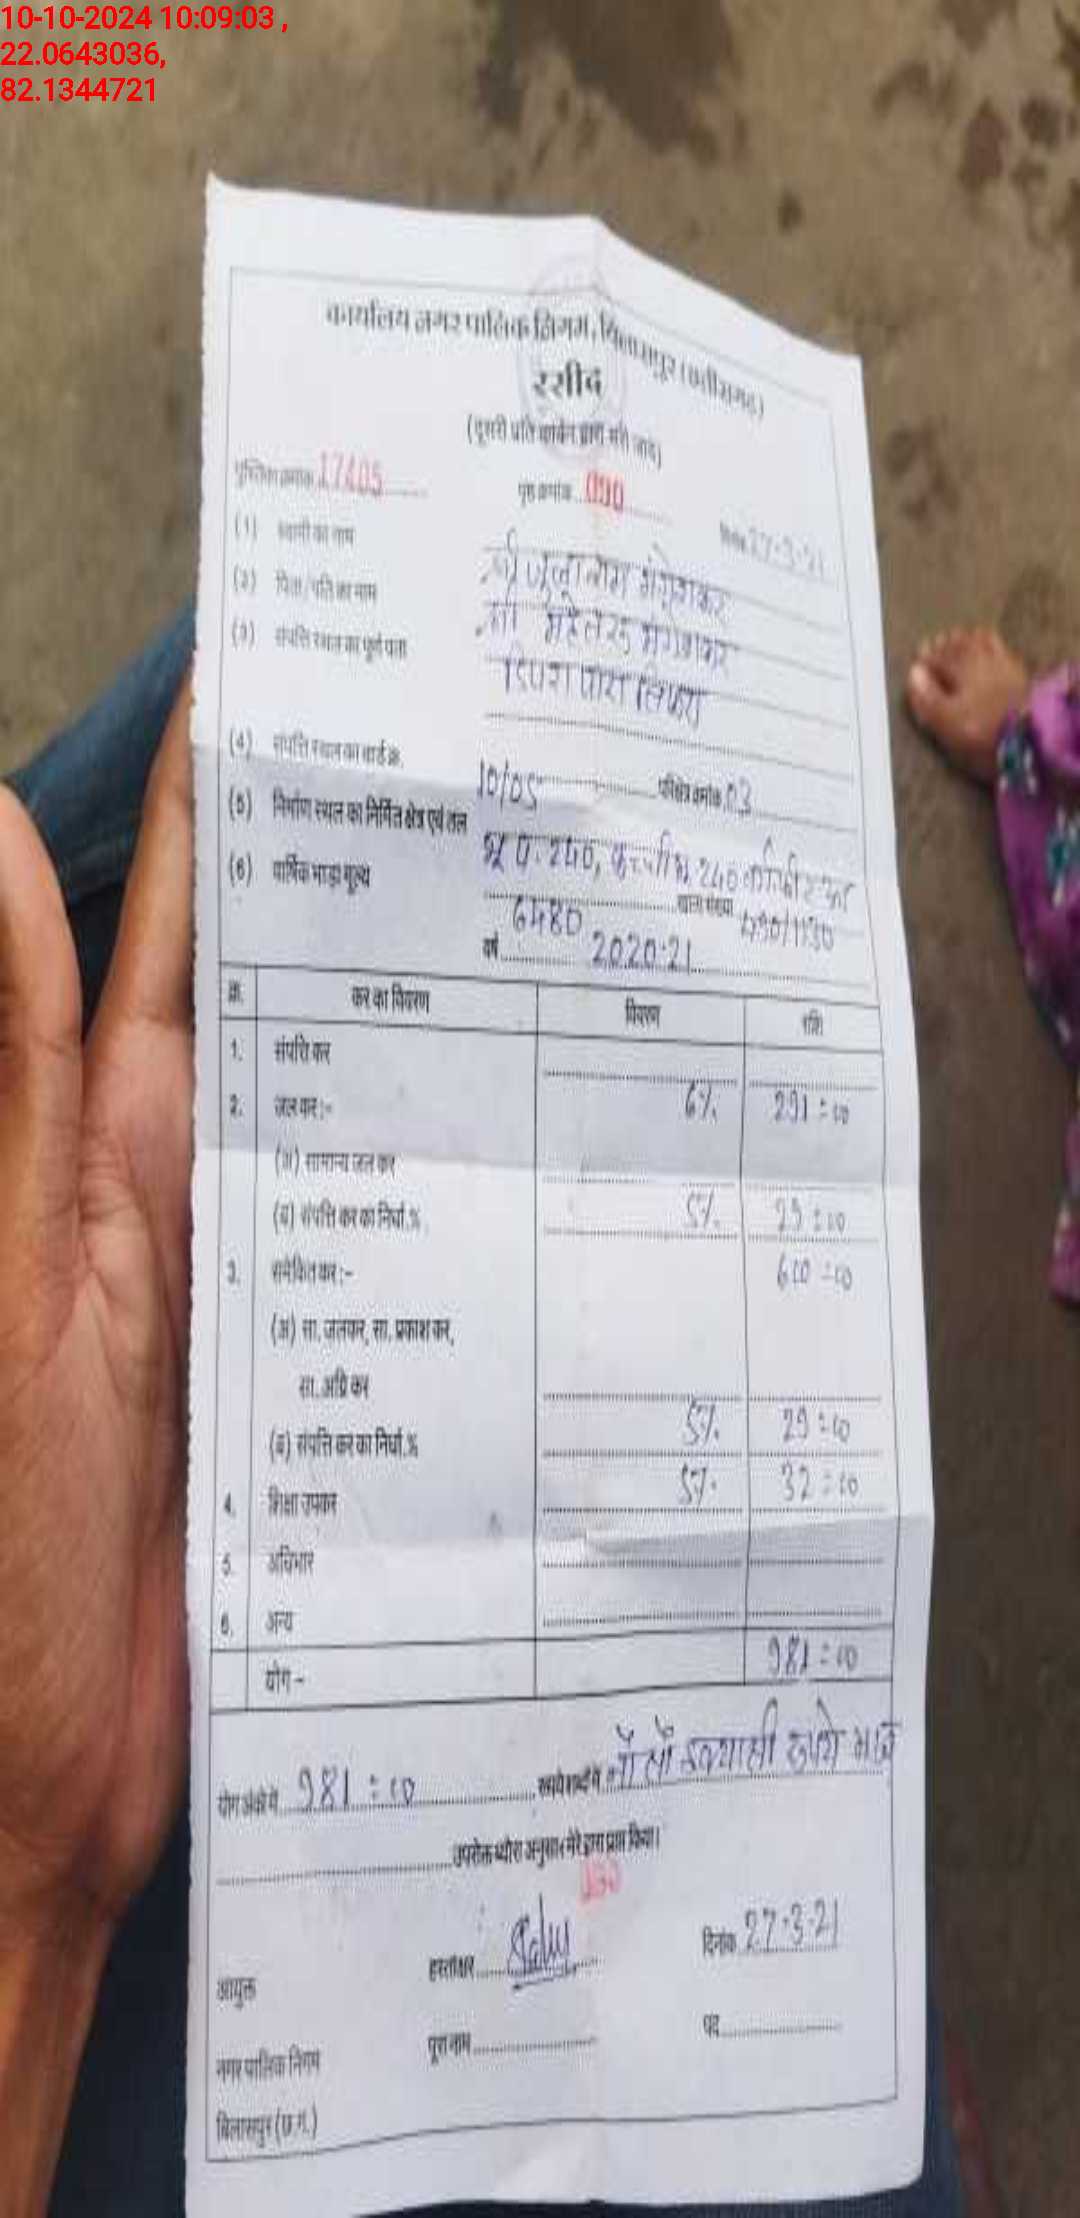 10-10-2024 10:09:03 ,
22.0643036,
82.1344721
कार्यालय नगर पालिक निगम, बिलासपुर (छत्तीसगढ़)
रसीद
(दूसरी प्रति कार्बन द्वारा भरी जाय)
पुस्तिका क्रमांक 17405 पृष्ठ क्रमांक 090 दिनांक 27-3-21
(1) स्वामी का नाम श्री
(2) पिता/पति का नाम श्री
(3) संपत्ति स्थल का पूर्ण पता पारा
(4) संपत्ति स्थल का वार्ड क्र. 10/05 परिक्षेत्र क्रमांक 03
(5) निर्माण स्थल का निर्मित क्षेत्र एवं तल 240, 240
(6) वार्षिक भाड़ा मूल्य 6480
वर्ष 2020-21
क्र. कर का विवरण विवरण राशि
1. संपत्ति कर 6% 291=00
2. जल कर :-
(अ) सामान्य जल कर
(ब) संपत्ति कर का निर्धा.% 5% 29=00
3. समेकित कर :- 600=00
(अ) सा. जलकर, सा. प्रकाश कर,
सा. अग्नि कर
(ब) संपत्ति कर का निर्धा.% 5% 29=00
4. शिक्षा उपकर 5% 32=00
5. अधिभार
6. अन्य
योग - 981=00
योग अंकों में 981=00 रुपये शब्दों में नौ सौ इक्यासी रुपये मात्र
उपरोक्त ब्यौरा अनुसार मेरे द्वारा प्राप्त किया।
हस्ताक्षर दिनांक 27-3-21
आयुक्त
पूरा नाम पद
नगर पालिक निगम
बिलासपुर (छ.ग.)